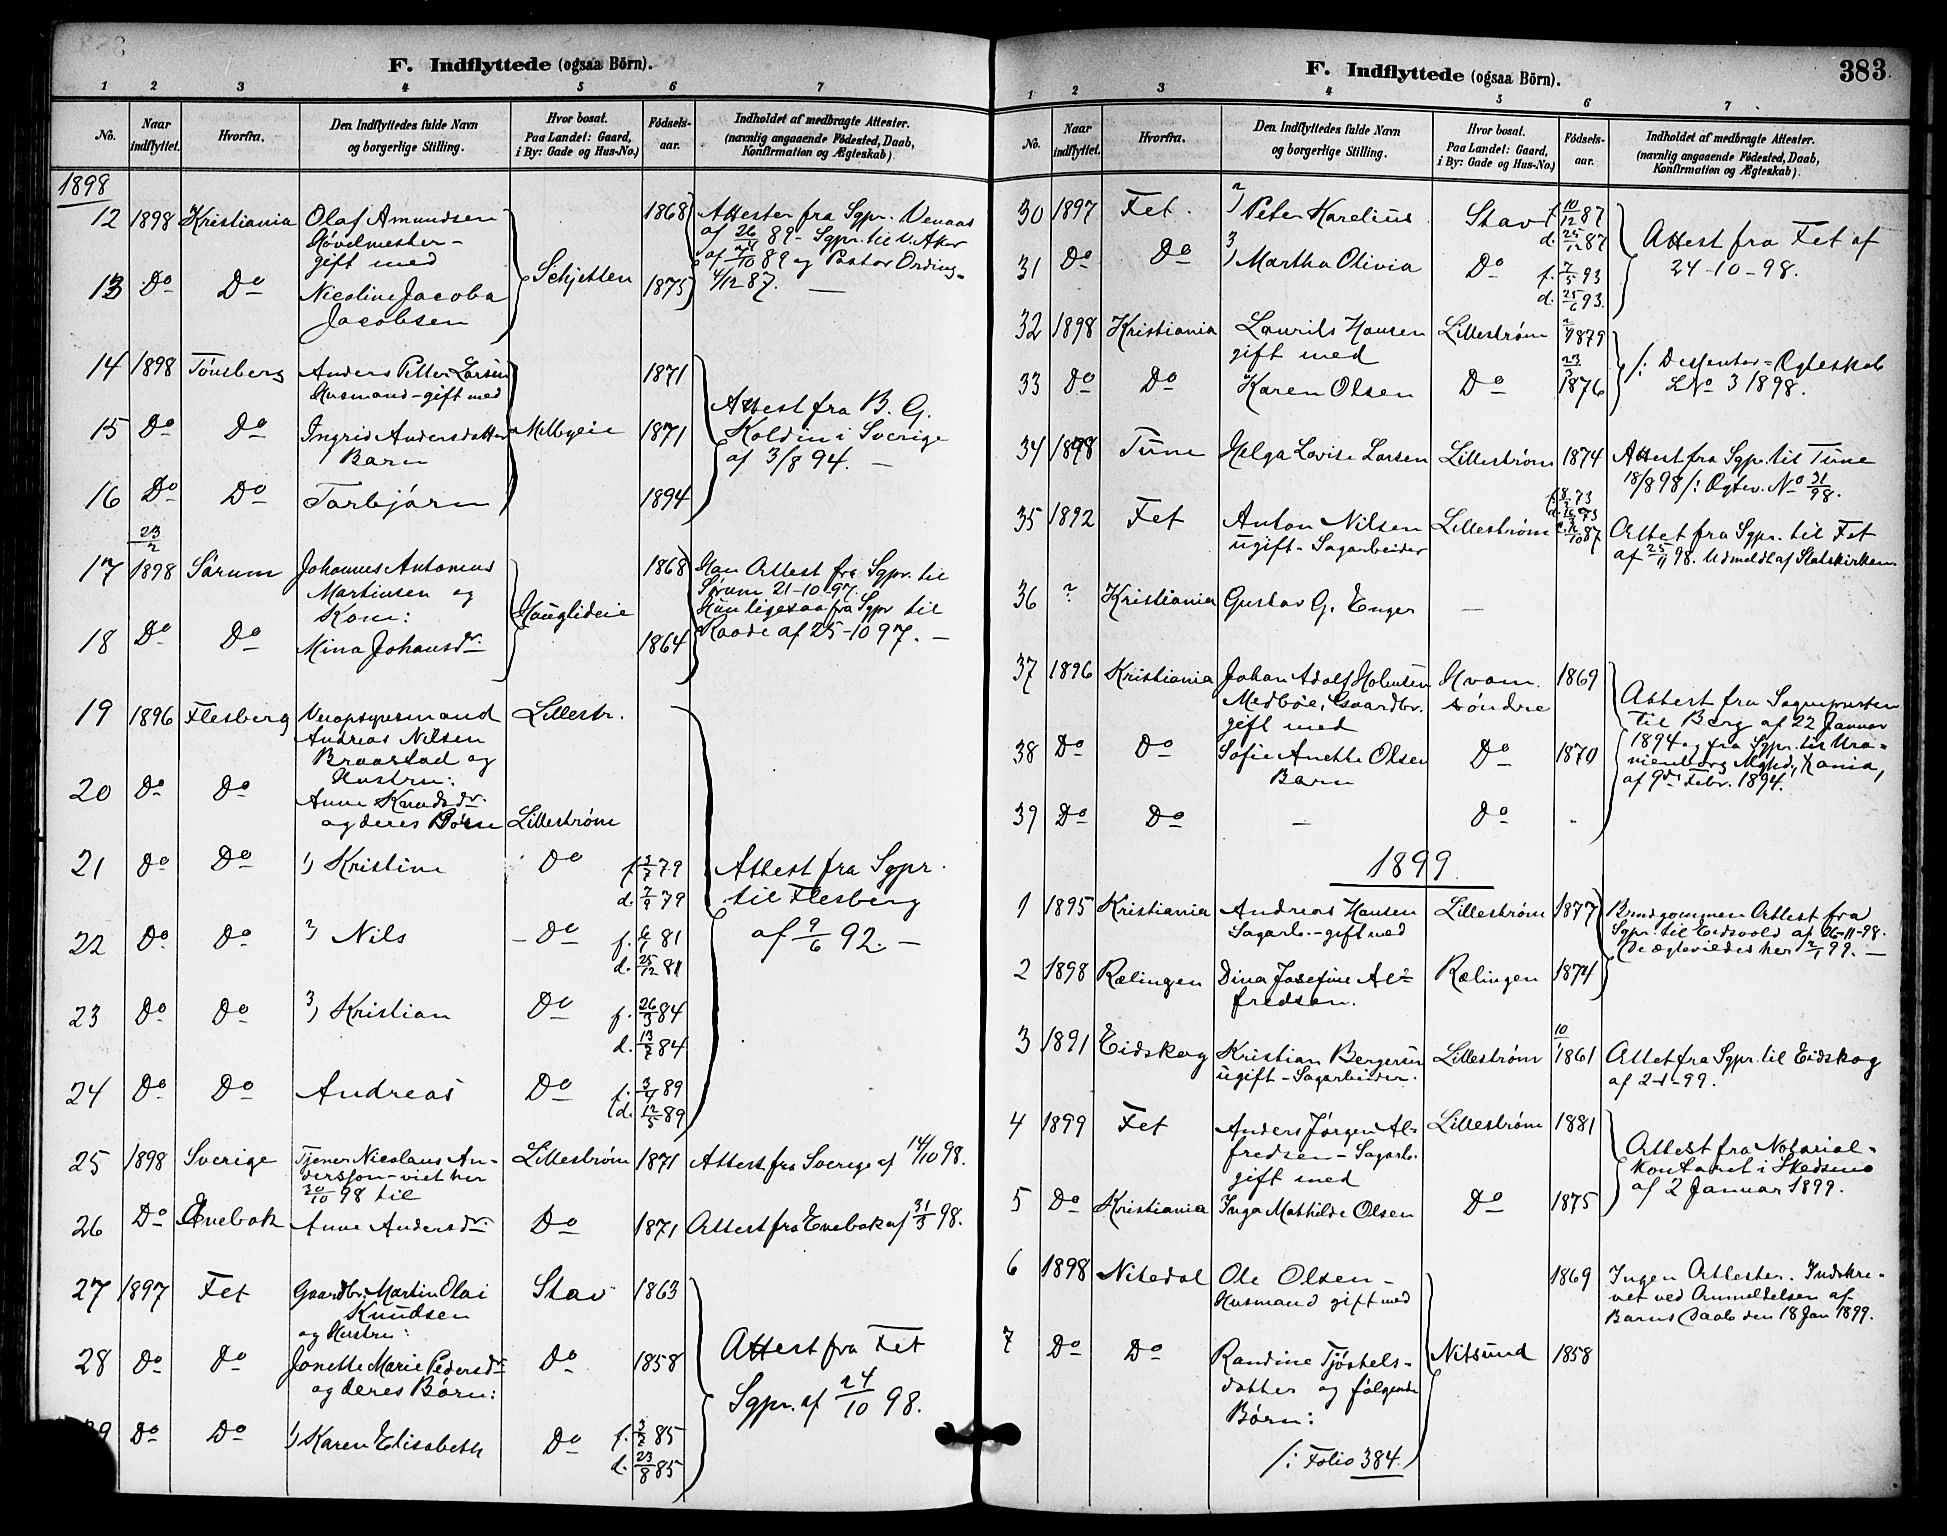 F. Indflyttede (ogsaa Börn).
1 2 3 4 5 6 7
No. Naar indflyttet. Hvorfra. Den Indflyttedes fulde Navn og borgerlige Stilling. Hvor bosat. Paa Landet: Gaard, i By: Gade og Hus-No.) Fødsels-aar. Indholdet af medbragte Attester. (navnlig angaaende Fødested, Daab, Konfirmation og Ægteskab)
1898
12 1898 Kristiania Olaf Amundsen 1868 Attester fra Sgpr. Venaas
Høvelmester- af 26/ 89- Sgpr. til V. Aker
gift med af /10 89 og Pastor
13 Do Do Nicoline Jacoba Schjetten 1875 4/12 87. —
Jacobsen
14 1898 Tönsberg Anders Petter Larsen 1871
Husmand-gift med Attest fra B. G.
15 Do Do Ingrid Andersdatter Melbyeie 1871 Koldin i Sverige
1 Barn af 3/8 94. —
16 Do Do Torbjørn 1894
23/2
17 1898 Sørum Johannes Antonius 1868 Han Attest fra Sgpr. til
Martinsen og Sørum 21-10-97.
Kone: Hauglideie Hun ligesaa fra Sgpr til
18 Do Do Mina Johansdr. 1864 Raade af 25-10 97. —
19 1896 Flesberg Lillestr.
Andreas Nilsen
Braastad og
Hustru:
20 Do Do Anne Knudsdr.
og deres Børn Lillestrøm
21 Do Do 1) Kristine Do f. 3/7 79 Attest fra Sgpr.
d. 7/9 79 til Flesberg
22 Do Do 2) Nils - Do f. 6/ 81 af 9/6 92. —
d. 25/12 81
23 Do Do 3) Kristian Do f. 26/3 84
d. 13/7 84
24 Do Do Andreas Do f. 3/4 89
d. 12/5 89
25 1898 Sverige Tjener Nicolaus An- Lillestrøm 1871 Attest fra Sverige af 14/10 98.
dersson-viet her
30/10 98 til
26 Do Enebak Anne Andersdr. Do 1871 Attest fra Enebak af 31/3 98.
27 1897 Fet Gaardbr. Martin Olai Stav 1863
Knudsen
og Hustru: Attest fra Fet
28 Do Do Jonette Marie Pedersdr Do 1858 Sgpr. af 24/10 98.
og deres Børn:
29 Do Do 1) Karen Elisabeth Do f. 3/2 85
d. 23/8 85
F. Indflyttede (ogsaa Börn). 383
1 2 3 4 5 6 7
No. Naar indflyttet. Hvorfra. Den Indflyttedes fulde Navn og borgerlige Stilling. Hvor bosat. Paa Landet: Gaard, i By: Gade og Hus-No.) Fødsels-aar. Indholdet af medbragte Attester. (navnlig angaaende Fødested, Daab, Konfirmation og Ægteskab).
30 1897 Fet. 2) Peter Karelius Stav f. 10/12 87
d. 25/12 87 Attest fra Fet af
31 Do Do 3) Martha Olivia Do f. 7/5 93 24-10-98.
d. 25/6 93.
32 1898 Kristiania Laurits Hansen Lillestrøm 2/9 1879
gift med 23/3 /: Dessenter-Ægteskab
33 Do Do Karen Olsen Do 1876 LNo 3 1898.
34 1898 Tune Helga Lovise Larsen Lillestrøm 1874 Attest fra Sgpr. til Tune
18/8 98 /: Ægtev. No 31/98.
35 1892 Fet Anton Nilsen Lillestrøm 87 Attet fra Sgpr. til Fet
ugift-Sagarbeider af 25/11 98. Udmeldt af Statskirken
36 ? Kristiania Gustav G. Enger —
37 1896 Kristiania Johan Adolf Holmsen Hvam 1869
Medböe, Gaardbr. søndre Attest fra Sognepresten
gift med til Berg af 22 Januar
38 Do Do Sofie Anette Olsen Do 1870 1894 og fra Sgpr. til Ura-
Barn nienborg Mghd., Kania,
39 Do Do — Do af 9de Febr. 1894.
1899
1 1895 Kristiania Andreas Hansen Lillestrøm 1877 Brudgommen Attest fra
Sagarb.-gift med Sgpr. til Eidsvold af 26-11-98.
2 1898 Rælingen Dina Josefine Al- Rælingen 1874 De ægteviedes her 2/1 99. —
fredsen.
3 1891 Eidskog Kristian Bergersen Lillestrøm 10/1 1861 Attet fra Sgpr. til Eidskog
ugift-Sagarbeider. af 2-1-99.
4 1899 Fet Anders Jørgen Al- Lillestrøm 1881
fredsen-Sagarb. Attest fra Notarial-
gift med kontoret i Skedsmo
5 Do Kristiania Inga Mathilde Olsen Do 1875 af 2 Januar 1899.
6 1898 Nitedal Ole Olsen- 1869 Ingen Attester. Indskre-
Husmand gift med vet ved Anmeldelsen af
Barns Daab den 18 Jan 1899.
7 Do Do Randine Tjöstels- Nitsund 1858
datter og følgende
Børn:
/: Folio 384.